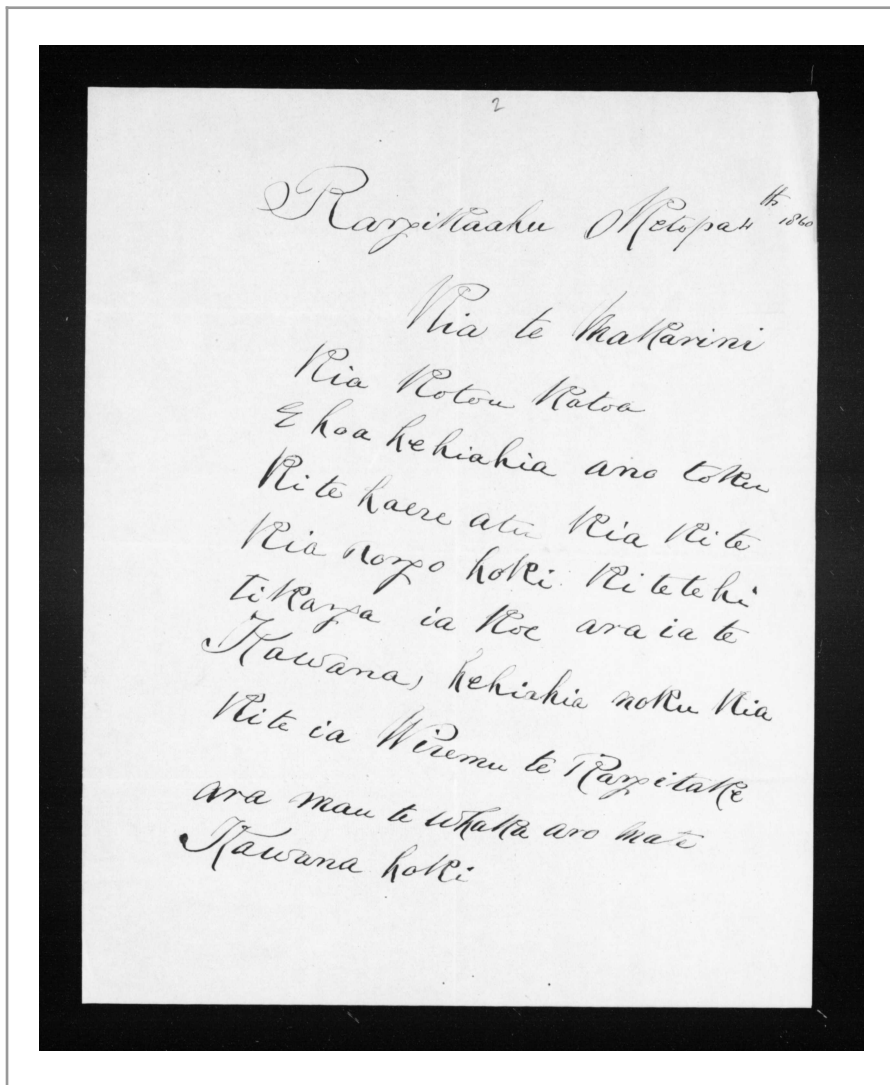 2
Rangikaahu Oketopa 4th 1860
Kia te Makarini
Kia Kotou Katoa
E hoa hehiahia ano toku
Ki te haere atu Kia Kite
Kia rongo hoki Kitetehi
tikanga ia Koe ara ia te
Kawana, hehiahia noku Kia
Kite ia Wiremu te Rangitake
ara mau te whaka aro ma te
Kawana hoki